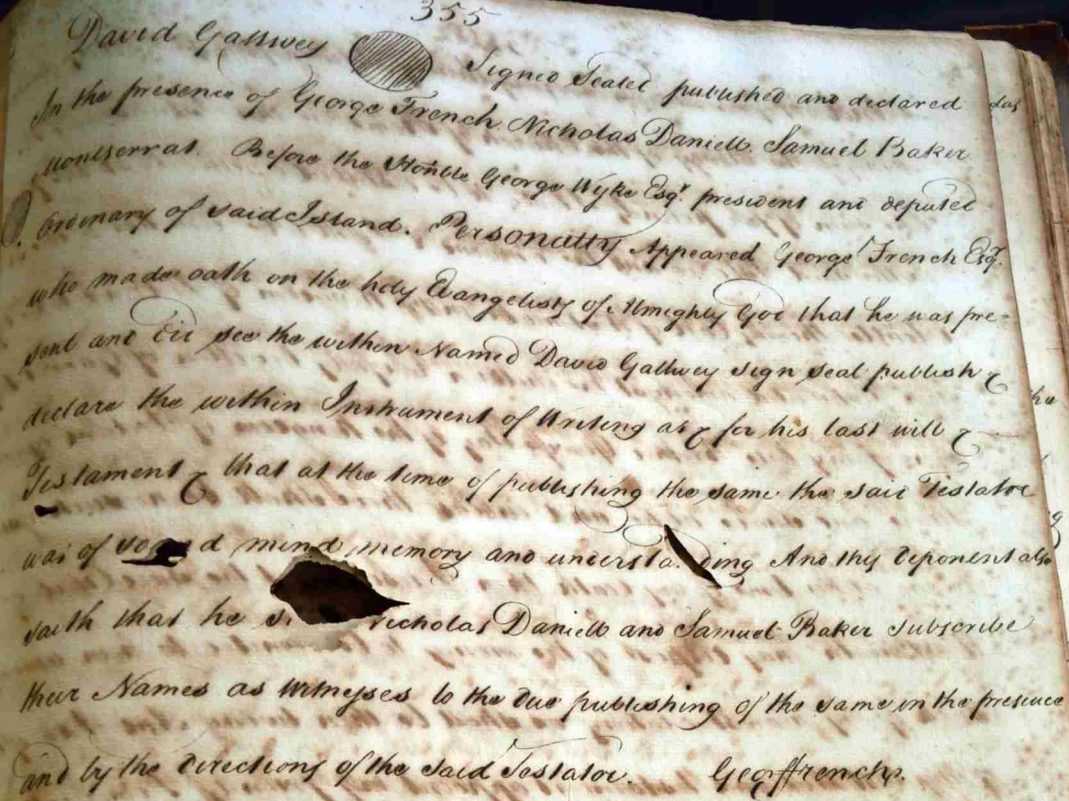 355
David Gallwey Signed Sealed published and declared
In the presence of George French Nicholas Daniell Samuel Baker
Montserrat. Before the Honble George Wyke Esqr. president and deputed
Ordinary of said Island. Personally Appeared George French Esqr.
who made oath on the holy Evangelists of Almighty God that he was pre=
sent and did see the within Named David Gallwey sign seal publish &
declare the within Instrument of Writing as & for his last will &
Testament & that at the time of publishing the same the said Testator
was of so d mind memory and understa ding And this deponent also
saith that he icholas Daniell and Samuel Baker subscribe
their Names as Witnesses to the due publishing of the same in the presence
and by the directions of the said Testator. Geo ffrench.